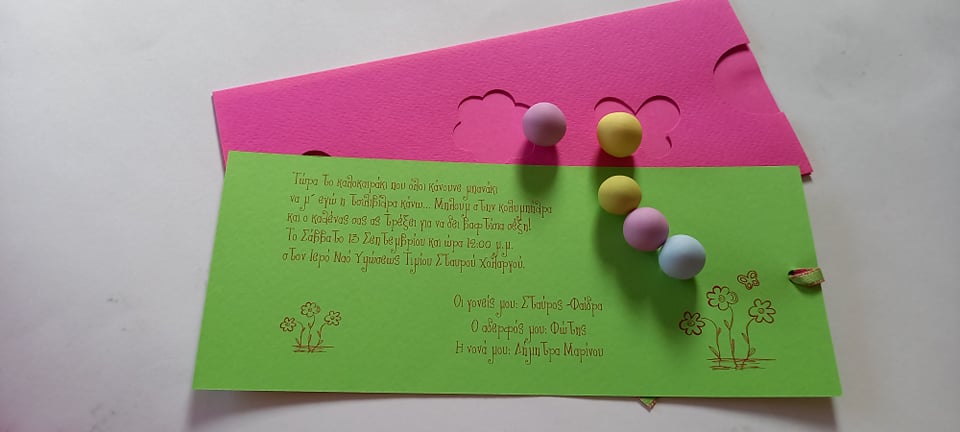 Τώρα το καλοκαιράκι που όλοι κάνουνε μπανάκι
να μ' εγώ η Τσιλιβίθρα κάνω... Μπλουμ στην κολυμπήθρα
και ο καθένας σας ας τρέξει για να δει βαφτίσια σέξη!
Το Σάββατο 13 Σεπτεμβρίου και ώρα 12:00 μ.μ.
στον Ιερό Ναό Υψώσεως Τιμίου Σταυρού Χολαργού.
Οι γονείς μου: Σταύρος -Φαίδρα
Ο αδερφός μου: Φώτης
Η νονά μου: Δήμητρα Μαρίνου